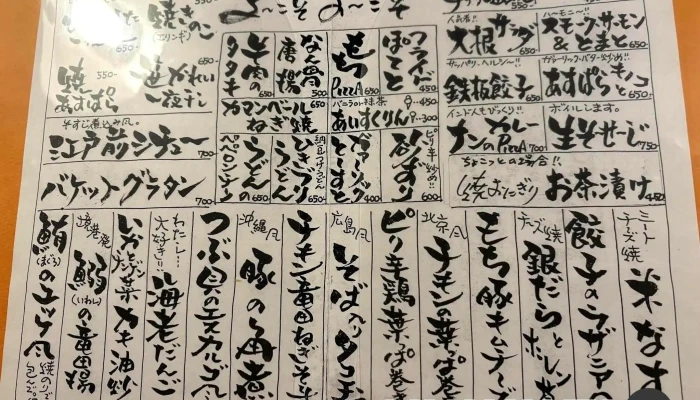 よ〜こそ よ〜こそ
焼きのこ
(エリンギ)
650-
550-
焼あすぱら
650-
笹かれい一夜干し
牛すじ煮込み風。
江戸前シチュー
700-
バケットグラタン
700-
牛肉のタタキ
650-
なん骨唐揚
500-
もちPizzA
650
フライドぽてと
450
カマンベールねぎ焼
650
バニラor抹茶
あいすくりん
450-
300
うどんのペペロンチーノ
650
納豆つけうどん
ひきづりうどん
650-
ガーリックとーすと
400
ピリ辛炒め!!
砂ずり
600
人気者!!
大根サラダ
650
ハ〜モニ〜!!
スモークサーモン&とまと
650-
サッパリ、ヘルシ〜!!
鉄板餃子
650
ガーリックバター炒め!!
あすぱらキノコ
650
インド人もびっくり!!
ナンのカレーPizzA
700
ボイルします。
生そせーじ
750
ちょこっとの場合!!
焼おにぎり
お茶漬け
450
ミートチーズ焼
米なす
餃子のラザニア
チーズ焼
銀だらとホーレン草
もち豚キムチーズ
北京風
チキンの葉っぱ巻き
ピリ辛鶏葉っぱ巻き
広島風
そば入りタコ
チキン竜田ねぎそ
沖縄風
豚の角煮
つぶ貝のエスカルゴ風
わたし…大好き!!
海老だんご
いかとチンゲン菜カキ油炒
境港発
鰯(いわし)の竜田揚
鮪(まぐろ)のユッケ風
焼のりで包んで。